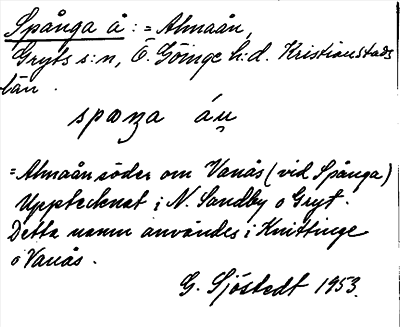 Spånga å : = Almaån,
Gryts s:n, Ö. Göinge h:d. Kristianstads
län.
spoŋa áṇ
= Almaån söder om Vanås (vid Spånga)
Upptecknat i N. Sandby o Gryt.
Detta namn användes i Knittinge
o Vanås.
G. Sjöstedt 1953.